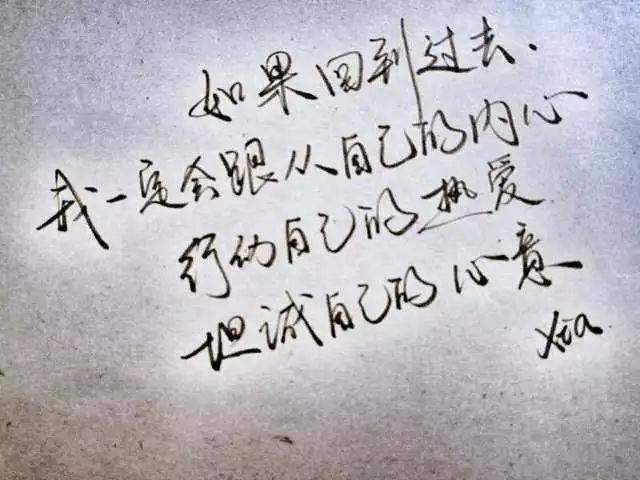 如果回到过去、
我一定会跟从自己的内心
行动自己的热爱
坦诚自己的心意
Xia